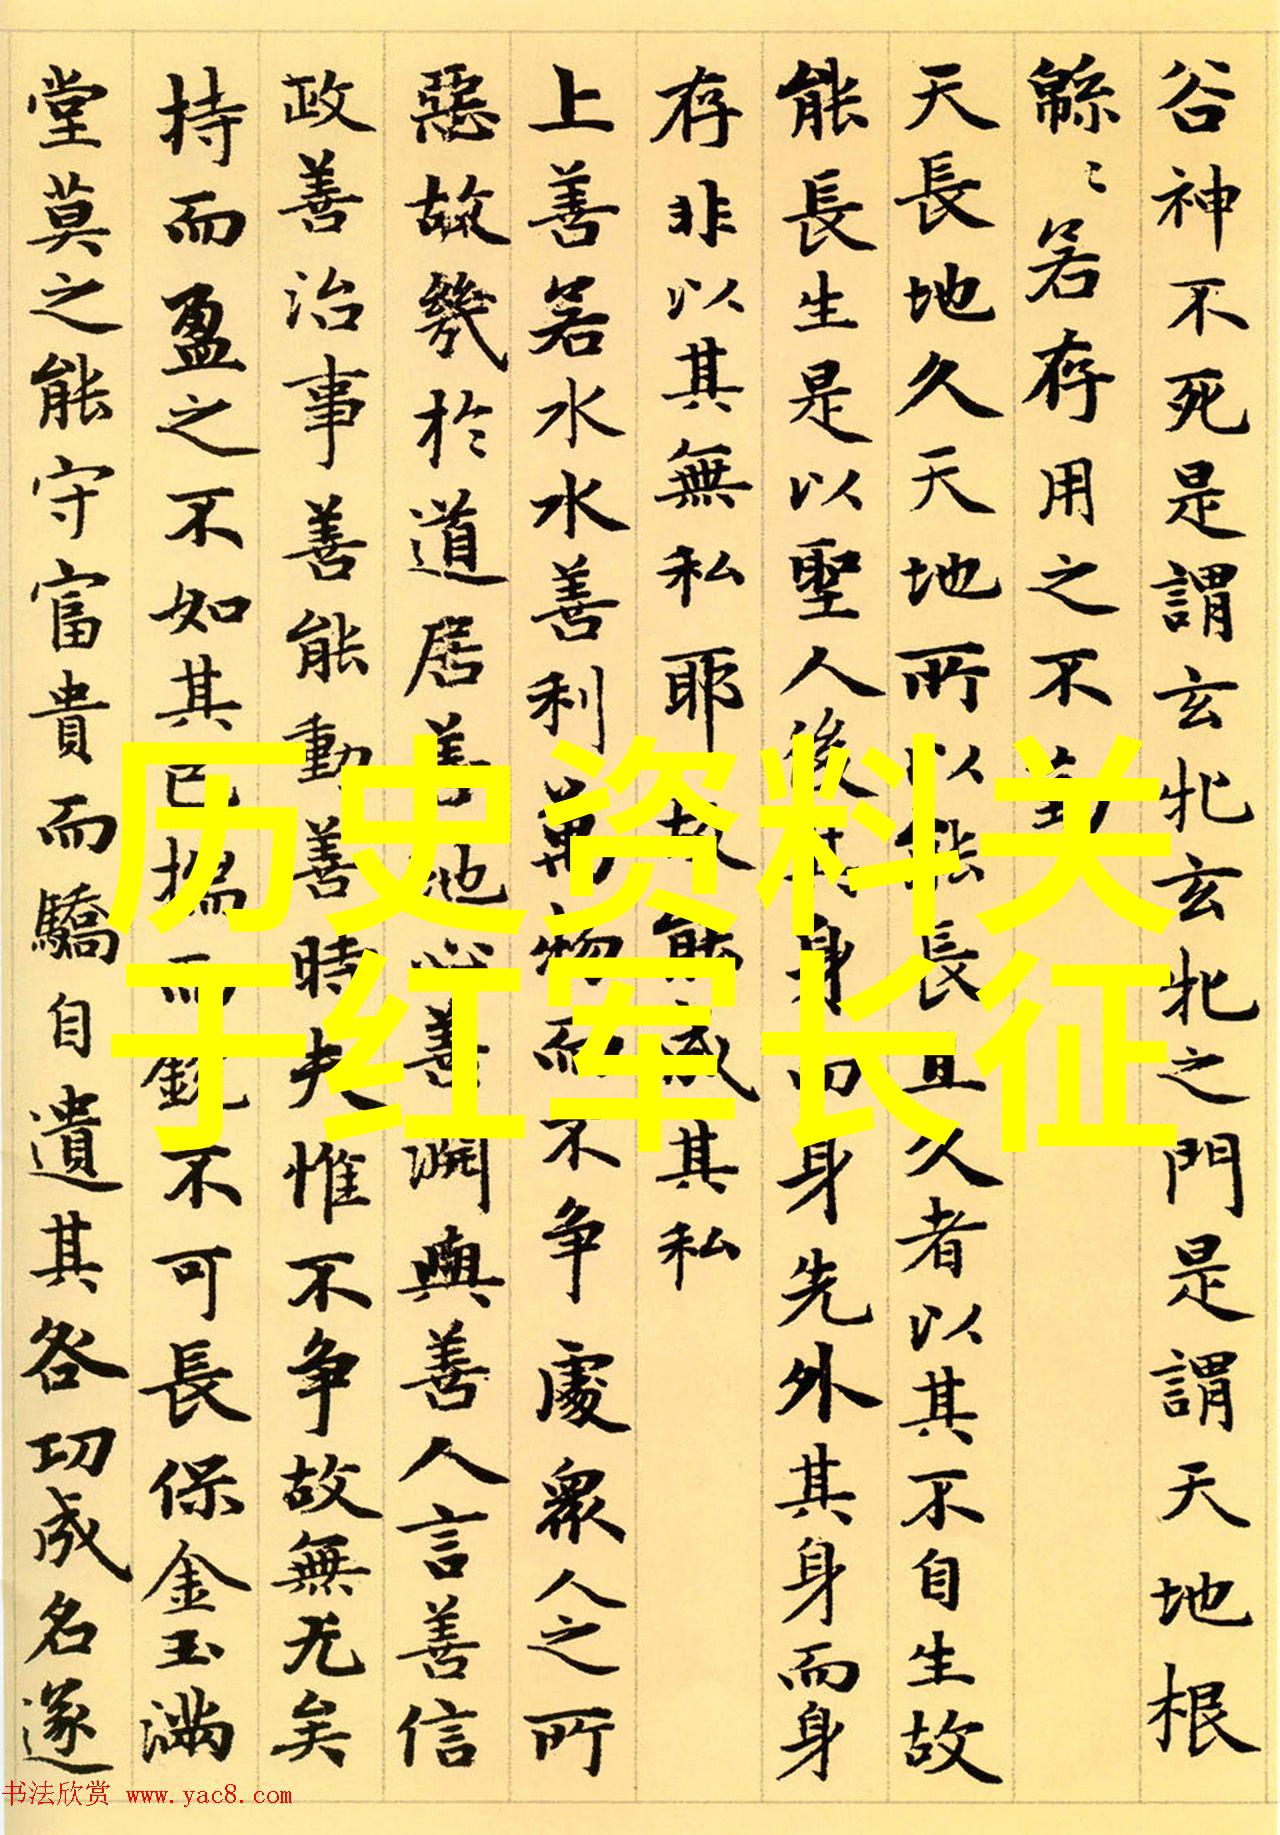 谷神不死是謂玄牝玄牝之門是謂天地根
緜〻若存用之不勤
天長地久天地所以能長且久者以其不自生故
能長生是以聖人後其身而身先外其身而身
存非以其無私耶故能成其私
上善若水水善利萬物而不争處衆人之所
惡故幾於道居善地心善淵與善人言善信
政善治事善能動善時夫惟不争故無尤矣
持而盈之不如其已揣而銳不可長保金玉滿
堂莫之能守富貴而驕自遺其咎功成名遂
历史资料关
于红军长征
书法欣赏 www.yac8.com